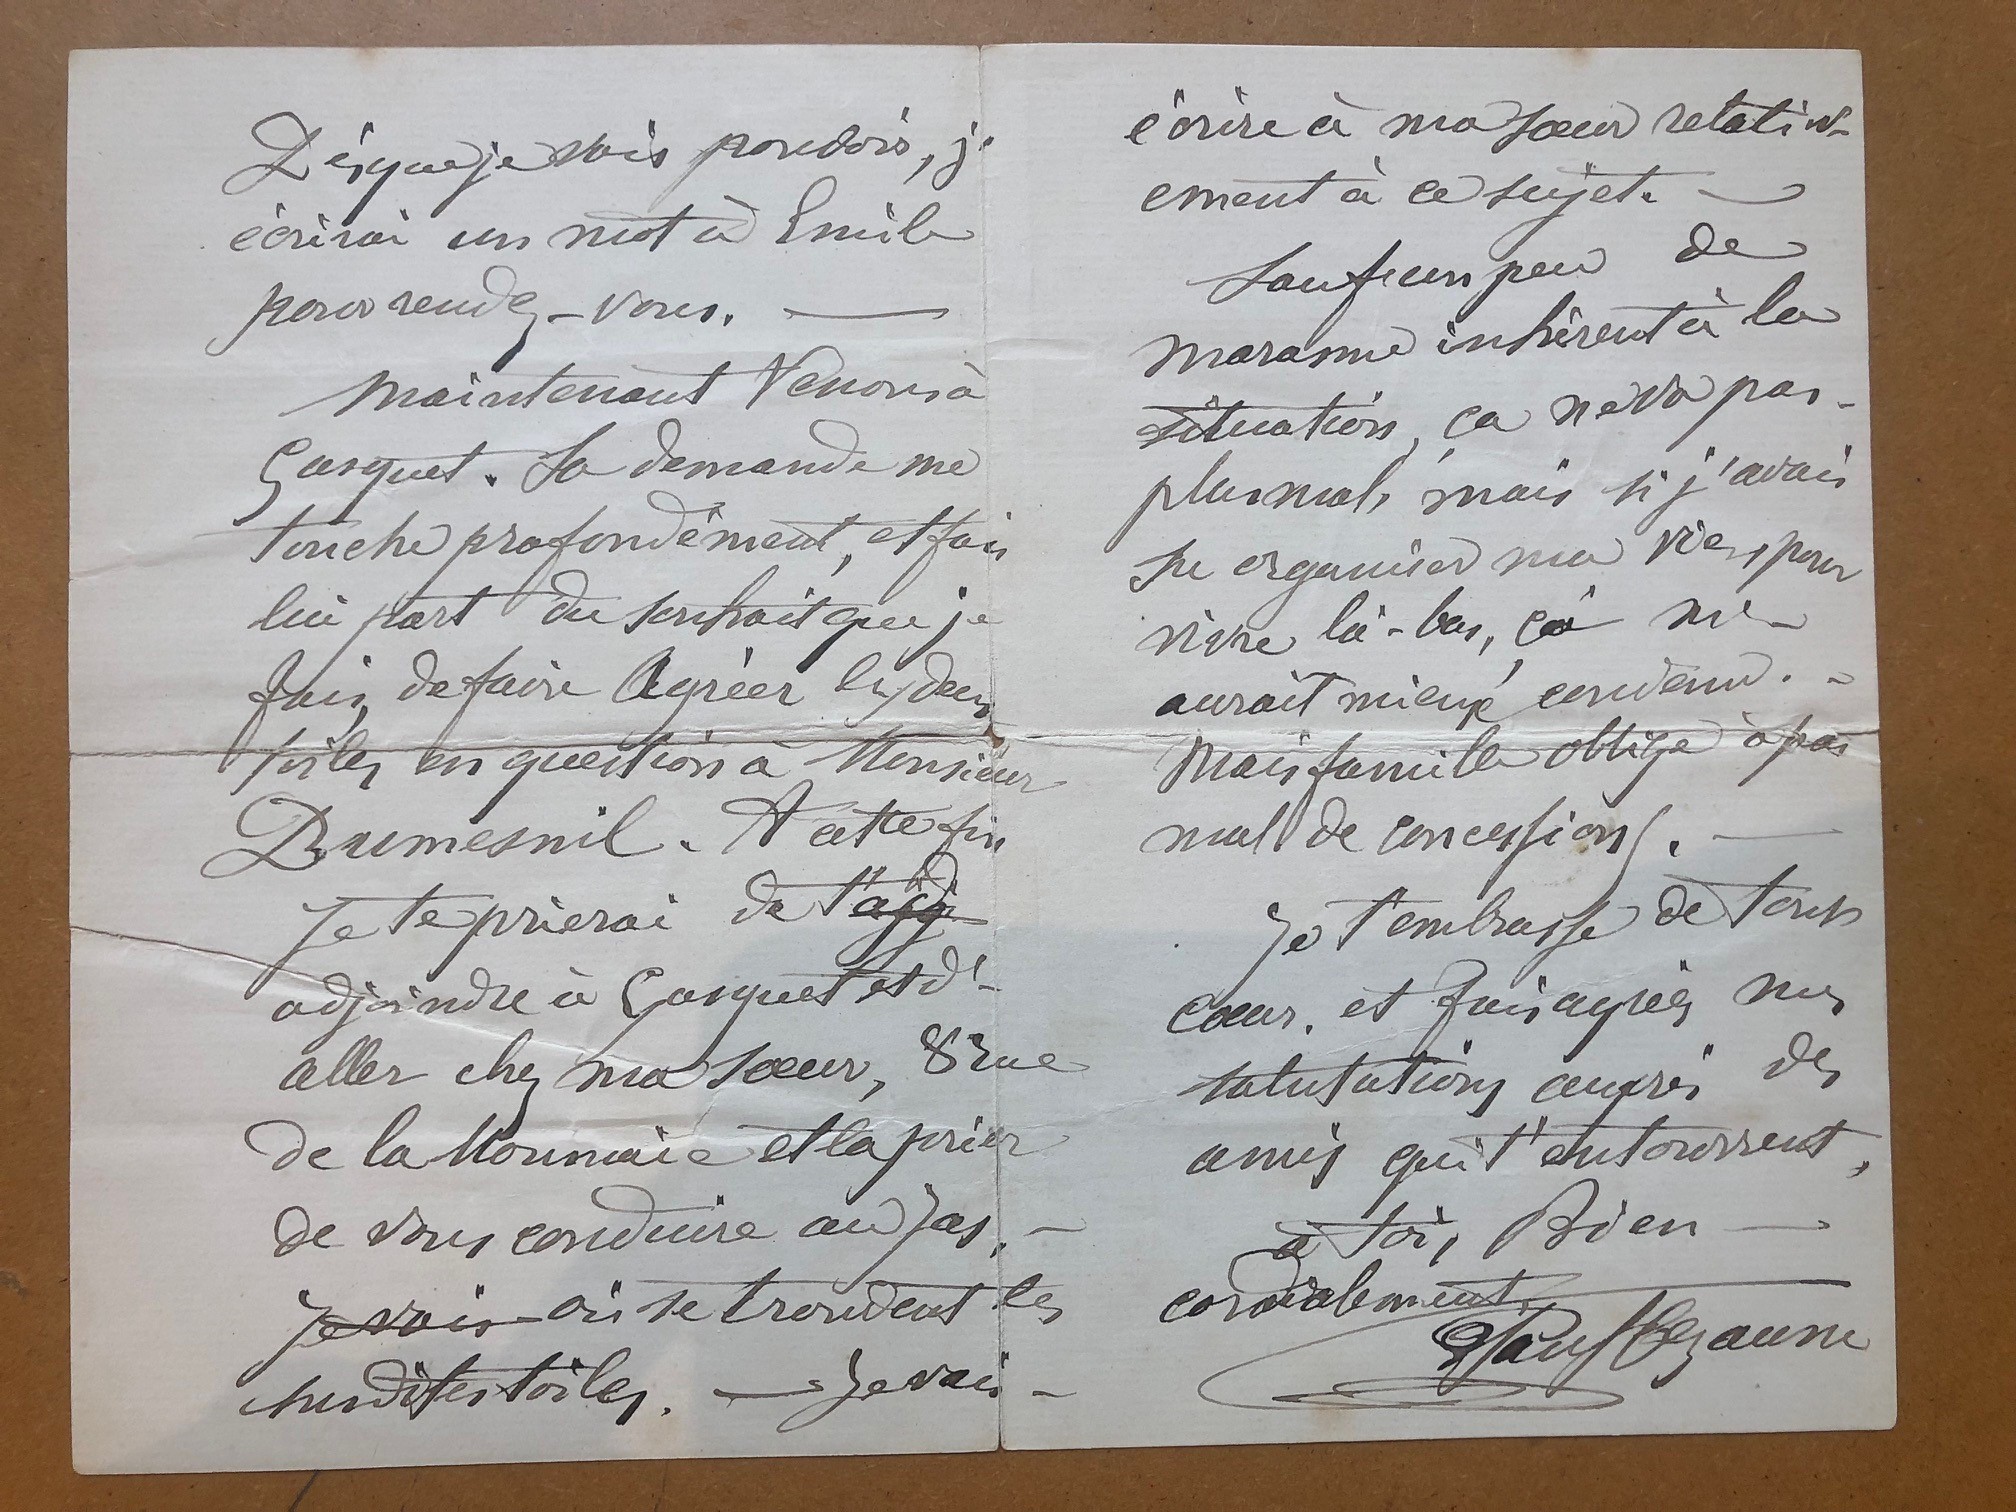 Dès que je vais pouvoir, j'
écrirai un mot à Emile
pour rendez-vous. —
Maintenant venons à
Gasquet. Sa demande me
touche profondément, et fais
lui part du souhait que je
fais, de faire Agréer les deux
toiles en question à Monsieur
Dumesnil. A cette fin
je te prierai de t'adj
adjoindre à Gasquet et d'-
aller chez ma sœur, 8 rue
de la Monnaie et la prier
de vous conduire au Jas, -
je vais où se trouvent les
susdites toiles. — Je vais -
écrire à ma sœur relativ-
ement à ce sujet. —
Sauf un peu de
marasme inhérent à la
situation, ça ne va pas -
plus mal, mais si j'avais
su organiser ma vie, pour
vivre là-bas, ça m'-
aurait mieux convenu. -
Mais famille oblige à pas
mal de concessions. —
Je t'embrasse de tout
cœur, et fais agréer mes
salutations auprès des
amis qui t'entourrent,
a toi, Bien —
cordialement,
Paul Cezanne